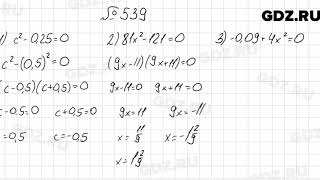 № 539
GDZ.RU
1) c²-0,25=0 2) 81x²-121=0 3) -0,09+4x²=0
c²-(0,5)²=0 (9x-11)(9x+11)=0
(c-0,5)(c+0,5)=0 9x-11=0 9x+11=0
c-0,5=0 c+0,5=0 9x=11 9x=-11
c=0,5 c=-0,5 x=11/9 x=-1 2/9
x=1 2/9